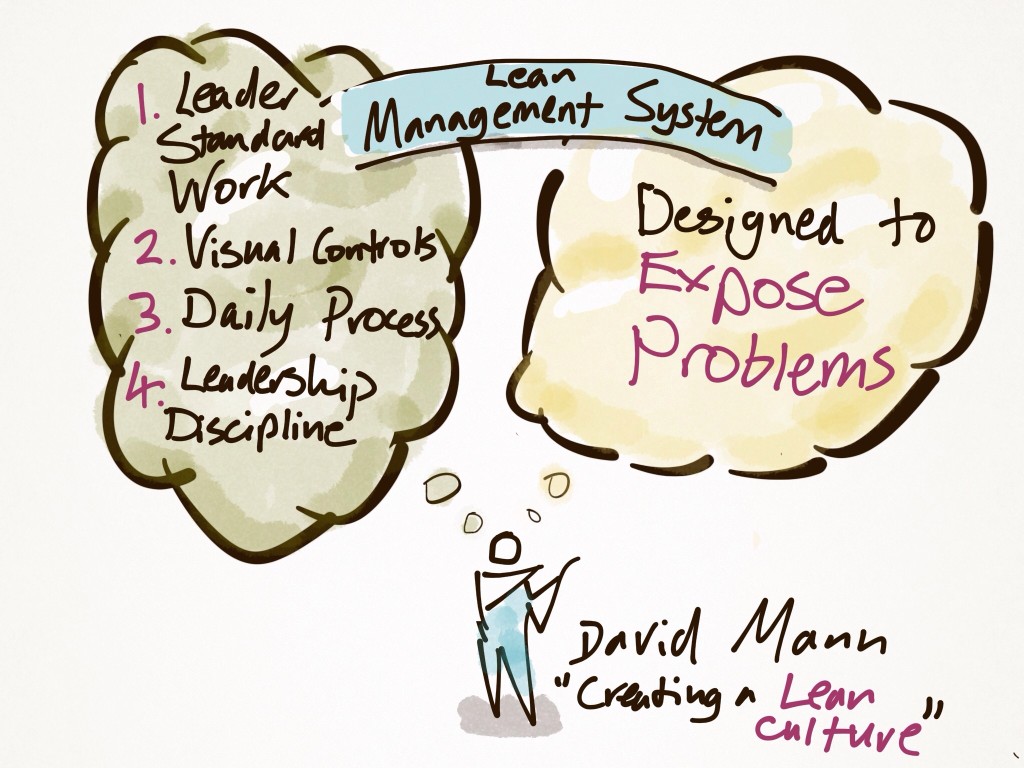 Lean
Management System
1. Leader
Standard
Work
2. Visual Controls
3. Daily Process
4. Leadership
Discipline
Designed to
Expose
Problems
David Mann
"Creating a Lean
culture"